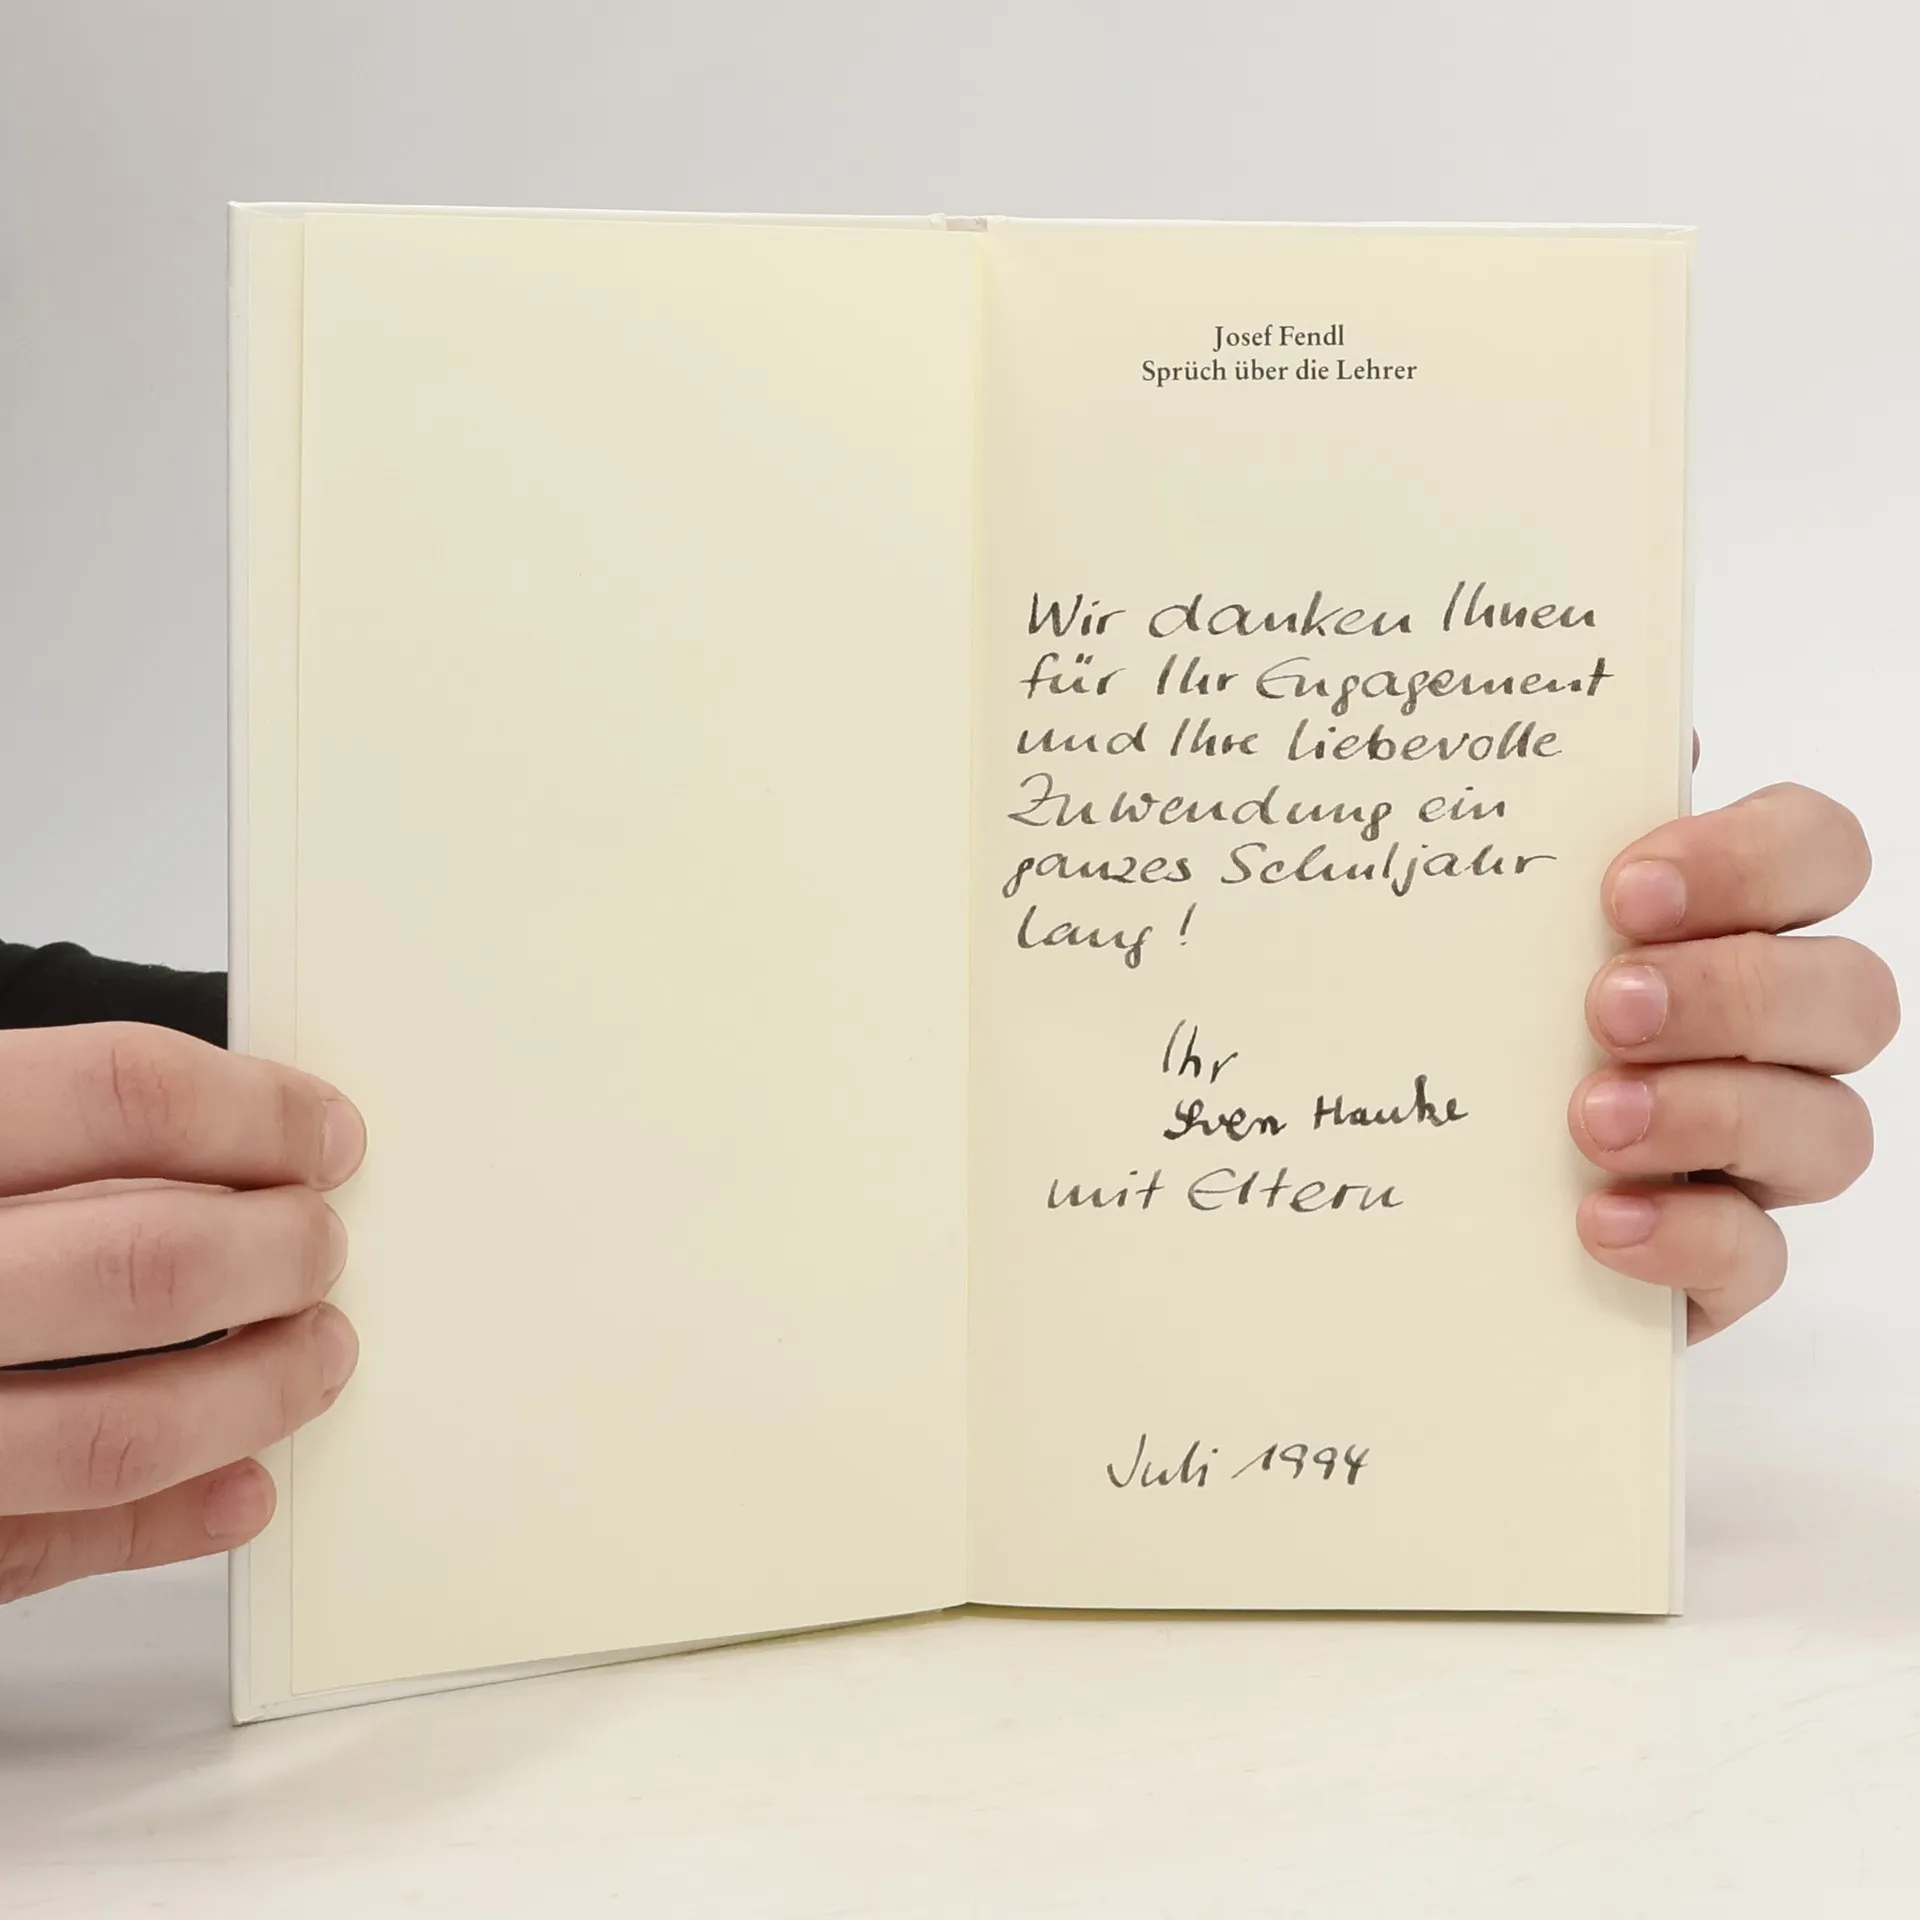 Josef Fendl
Sprüch über die Lehrer
Wir danken Ihnen
für Ihr Engagement
und Ihre liebevolle
Zuwendung ein
ganzes Schuljahr
lang!
Ihr
Sven Hauke
mit Eltern
Juli 1994